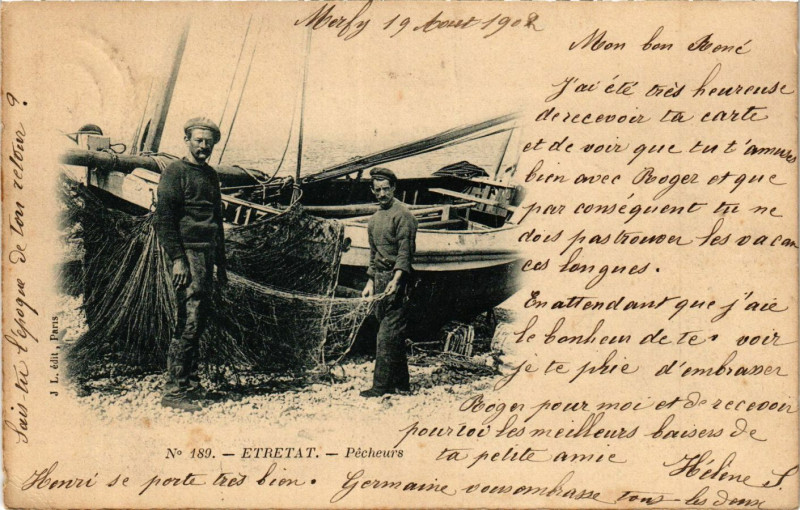 Morfy 19 Aout 1902
Mon bon René
J'ai été très heureuse
de recevoir ta carte
et de voir que tu t'amuses
bien avec Roger et que
par conséquent tu ne
dois pas trouver les vacan
ces longues.
En attendant que j'aie
le bonheur de te voir
je te prie d'embrasser
Roger pour moi et de recevoir
pour toi les meilleurs baisers de
ta petite amie
Hélène S.
Germaine vous embrasse tous les deux
Henri se porte très bien.
Sais-tu l'époque de ton retour ?
J L. édit. Paris
117
No 189. — ETRETAT. — Pêcheurs